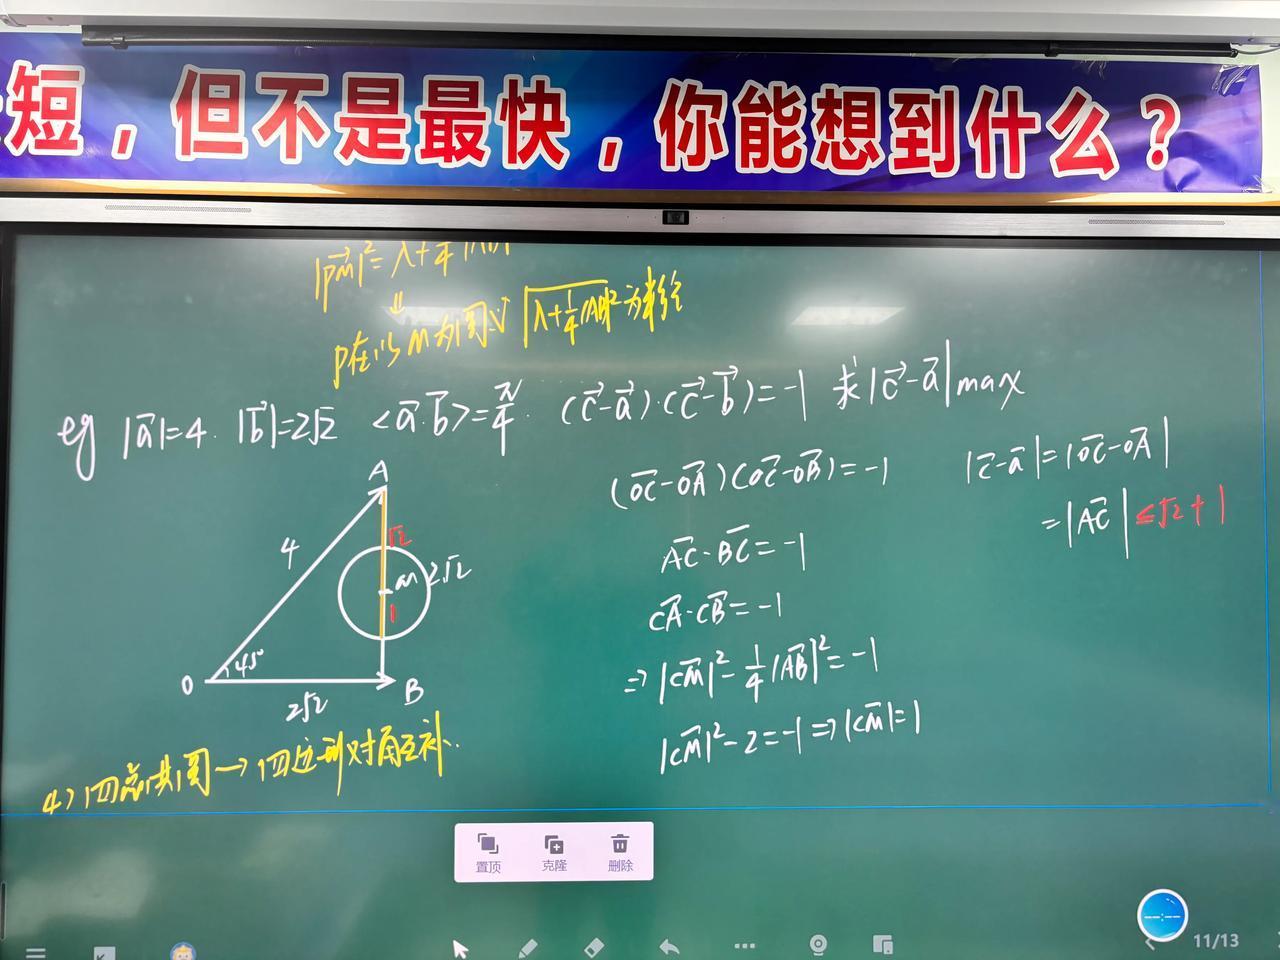 短，但不是最快，你能想到什么？
|PM|²=λ+¼|AB|
⇓
P在以M为圆心√λ+¼|AB|²为半径
eg |a⃗|=4. |b⃗|=2√2 <a⃗.b⃗>=π/4. (c⃗-a⃗).(c⃗-b⃗)=-1 求|c⃗-a⃗|max
(OC-OA)(OC-OB)=-1 |c-a|=|OC-OA|
=|AC|≤√2+1
AC·BC=-1
CA·CB=-1
⇒|CM|²-¼|AB|²=-1
|CM|²-2=-1⇒|CM|=1
A
4
√2
M
2√2
1
O
45°
B
2√2
4>四点共圆→四边形对角互补.
置顶 克隆 删除
11/13